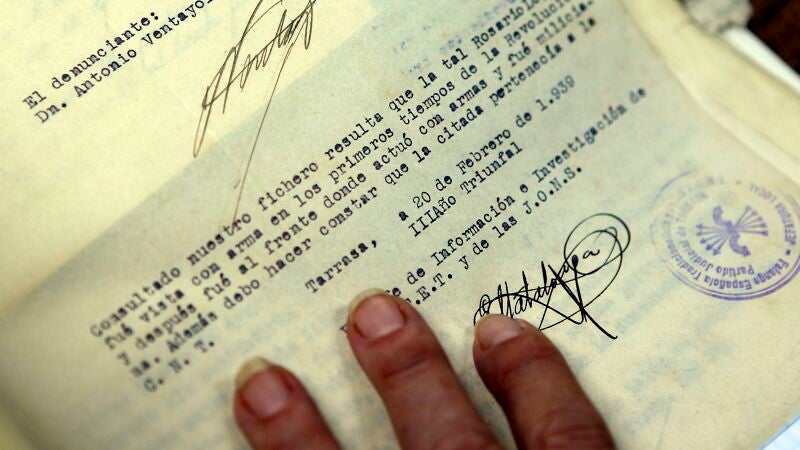 El denunciante:
Dn. Antonio Ventayol
Consultado nuestro fichero resulta que la tal Rosario
fué vista con arma en los primeros tiempos de la Revolución
y después fué al frente donde actuó con armas y fué milicia
na. Además debo hacer constar que la citada pertenecía a la
C. N. T.
Tarrasa, a 20 de Febrero de 1.939
IIIAño Triunfal
de Información e Investigación de
.E.T. y de las J.O.N.S.
Falange Española Tradicional
Partido Judicial de
JEFATURA LOCAL